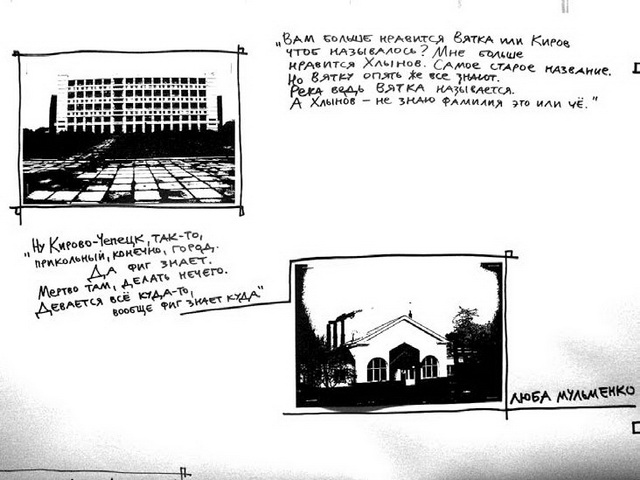 „Вам больше нравится Вятка или Киров
чтоб называлось? Мне больше
нравится Хлынов. Самое старое название.
Но Вятку опять же все знают.
Река ведь Вятка называется.
А Хлынов – не знаю фамилия это или чё."
„Ну Кирово-Чепецк, так-то,
прикольный, конечно, город.
Да фиг знает.
Мертво там, делать нечего.
Девается всё куда-то,
вообще фиг знает куда"
Люба Мульменко